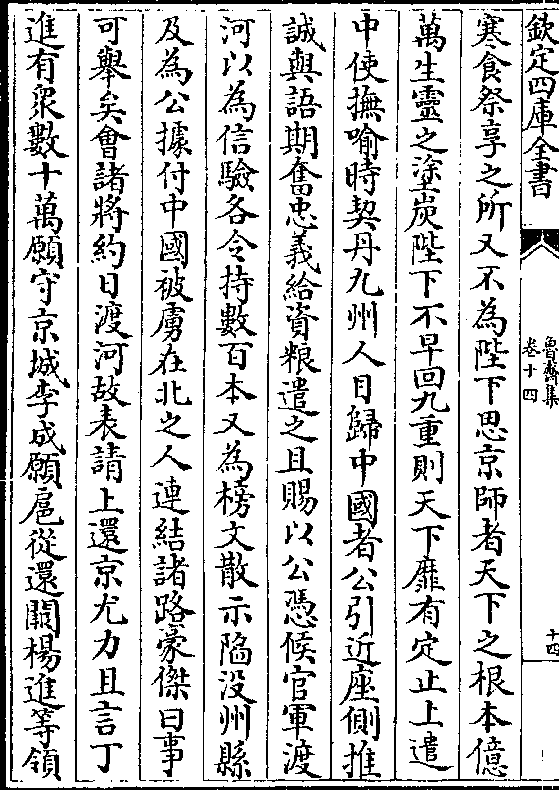 欽定四庫全書
魯齋集
卷十四
十四
寒食祭享之所又不為陛下思京師者天下之根本億
萬生靈之塗炭陛下不早回九重則天下靡有定止上遣
中使撫喻時契丹九州人日歸中國者公引近座側推
誠與語期奮忠義給資粮遣之且賜以公憑候官軍渡
河以為信驗各令持數百本又為榜文散示陥没州縣
及為公據付中國被虜在北之人連結諸路豪傑曰事
可舉矣會諸將約日渡河故表請上還京尤力且言丁
進有衆數十萬願守京城李成願扈從還闕楊進等領